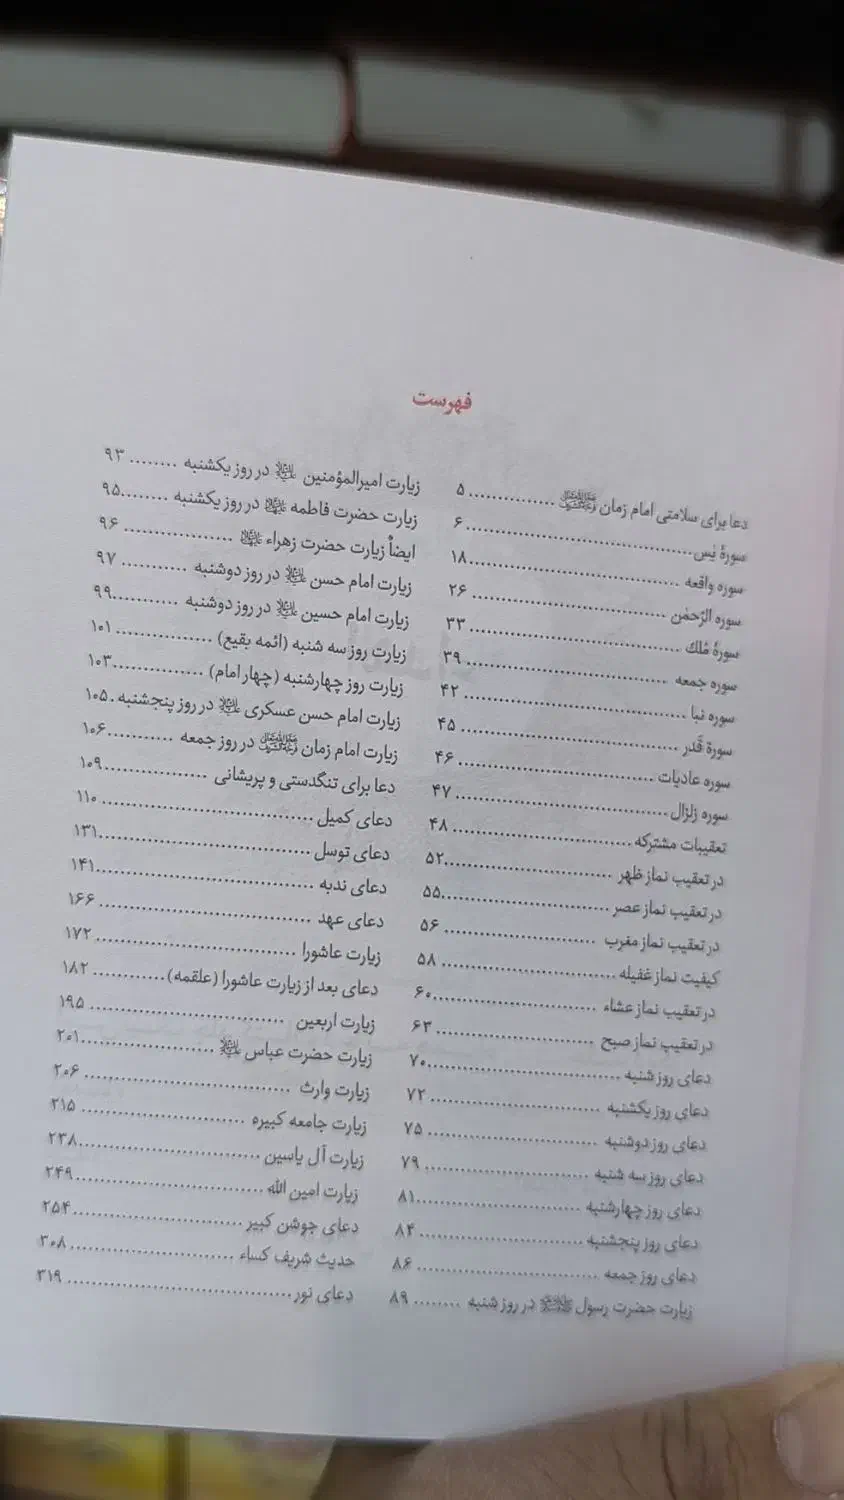 فهرست
دعا برای سلامتی امام زمان ............... ۵
سورهٔ یٰس ............... ۶
سوره واقعه ............... ۱۸
سوره الرّحمٰن ............... ۲۶
سورهٔ مُلك ............... ۳۳
سوره جمعه ............... ۳۹
سوره نبا ............... ۴۲
سورهٔ قَدر ............... ۴۵
سوره عادیات ............... ۴۶
سوره زلزال ............... ۴۷
تعقیبات مشترکه ............... ۴۸
در تعقیب نماز ظهر ............... ۵۲
در تعقیب نماز عصر ............... ۵۵
در تعقیب نماز مغرب ............... ۵۶
کیفیت نماز غفیله ............... ۵۸
در تعقیب نماز عشاء ............... ۶۰
در تعقیب نماز صبح ............... ۶۳
دعای روز شنبه ............... ۷۰
دعای روز یکشنبه ............... ۷۲
دعای روز دوشنبه ............... ۷۵
دعای روز سه شنبه ............... ۷۹
دعای روز چهارشنبه ............... ۸۱
دعای روز پنجشنبه ............... ۸۴
دعای روز جمعه ............... ۸۶
زیارت حضرت رسول ﷺ در روز شنبه ........ ۸۹
زیارت امیرالمؤمنین در روز یکشنبه ........ ۹۳
زیارت حضرت فاطمه در روز یکشنبه ........ ۹۵
ایضاً زیارت حضرت زهراء ............... ۹۶
زیارت امام حسن در روز دوشنبه ........... ۹۷
زیارت امام حسین در روز دوشنبه ........... ۹۹
زیارت روز سه شنبه (ائمه بقیع) ............... ۱۰۱
زیارت روز چهارشنبه (چهار امام) ............... ۱۰۳
زیارت امام حسن عسکری در روز پنجشنبه . ۱۰۵
زیارت امام زمان در روز جمعه ........... ۱۰۶
دعا برای تنگدستی و پریشانی ............... ۱۰۹
دعای کمیل ............... ۱۱۰
دعای توسل ............... ۱۳۱
دعای ندبه ............... ۱۴۱
دعای عهد ............... ۱۶۶
زیارت عاشورا ............... ۱۷۲
دعای بعد از زیارت عاشورا (علقمه) ............ ۱۸۲
زیارت اربعین ............... ۱۹۵
زیارت حضرت عباس ............... ۲۰۱
زیارت وارث ............... ۲۰۶
زیارت جامعه کبیره ............... ۲۱۵
زیارت آل یاسین ............... ۲۳۸
زیارت امین الله ............... ۲۴۹
دعای جوشن کبیر ............... ۲۵۴
حدیث شریف کساء ............... ۳۰۸
دعای نور ............... ۳۱۹